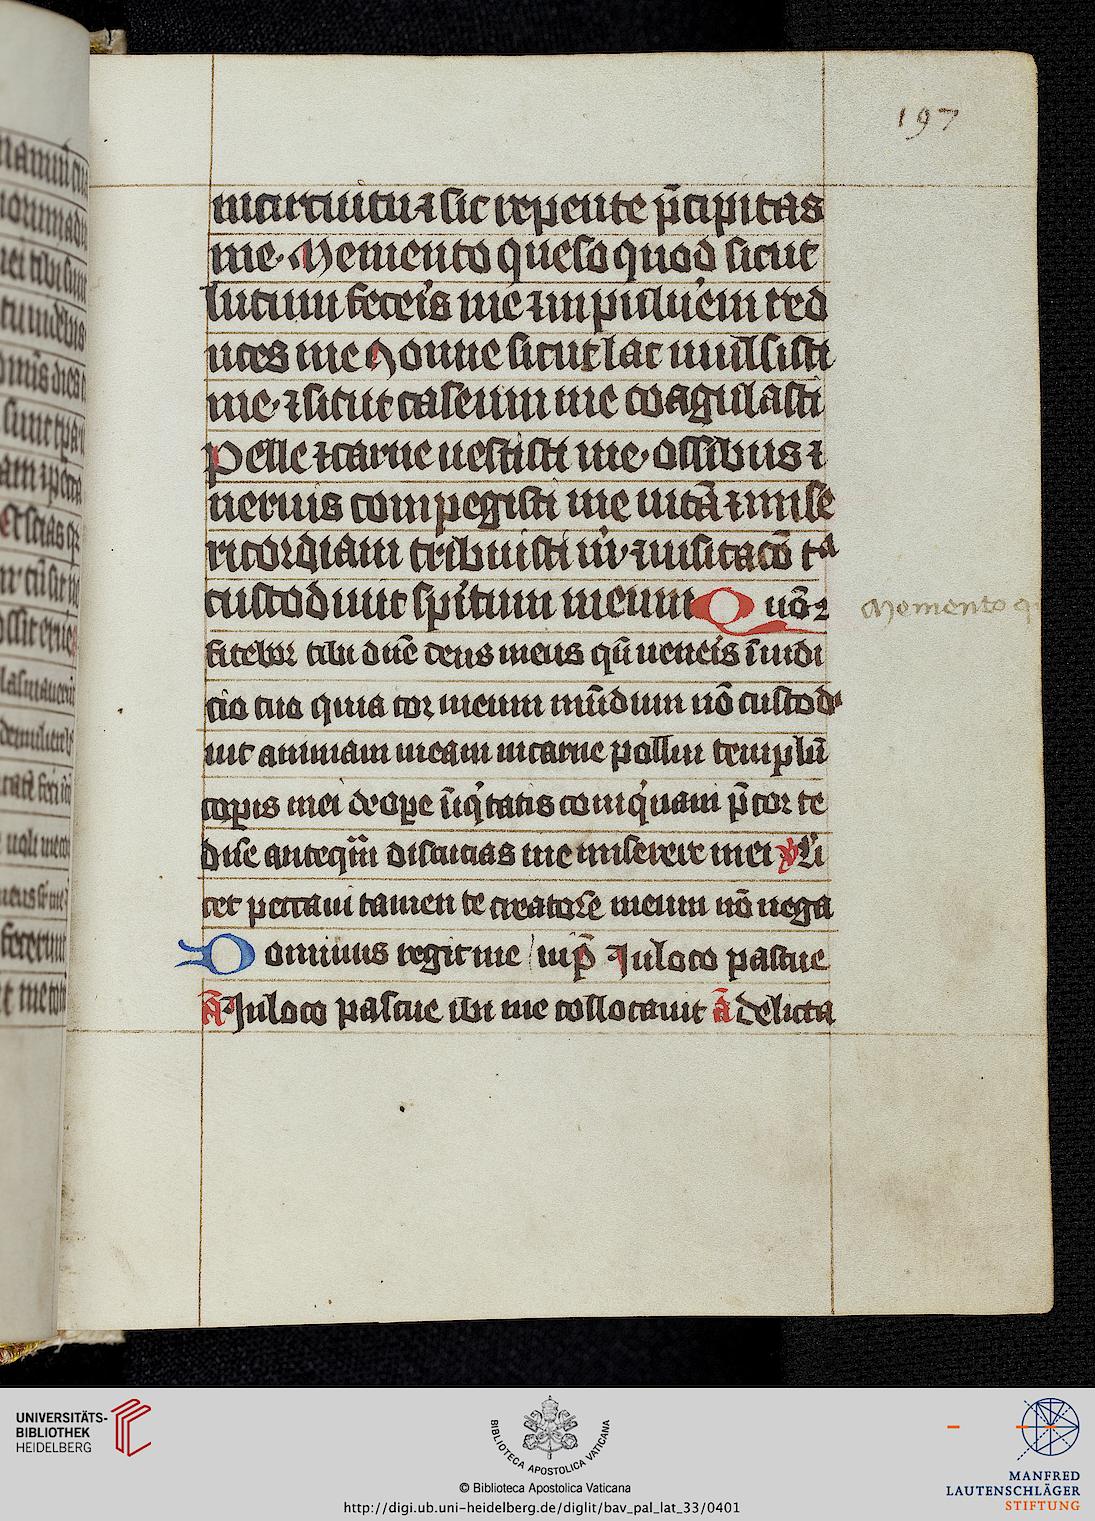 197
in circuitu ⁊ sic repente p̄cipitas
me. Memento queso quod sicut
lutum fecerꝭ me ⁊ in puluꝰem red
uces me Nonne sicut lac mulsisti
me. ⁊ sicut caseum me coagulasti
Pelle ⁊ carne uestisti me. ossibus ⁊
neruis compegisti me uitā ⁊ mise
ricordiam tribuisti m̄. ⁊ uisitacō tᵃ
custodiuit spiritum meum Quō ꝯ
fitebor tibi dn̄e deus meus qn̄ uenerꝭ ī iudi
cio tuo quia cor meum mūdum nō custodi
uit animam meam in carne pollui templū
corpis mei
dise antequā discucias me miserere mei ℣ Li
cet peccaui tamen te creatorē meum nō nega
Dominus regit me in p̄ In loco pascue
Ā In loco pascue ibi me collocauit Ā delicta
Memento q
UNIVERSITÄTS-
BIBLIOTHEK
HEIDELBERG
BIBLIOTECA APOSTOLICA VATICANA
© Biblioteca Apostolica Vaticana
http://digi.ub.uni-heidelberg.de/diglit/bav_pal_lat_33/0401
MANFRED
LAUTENSCHLÄGER
STIFTUNG